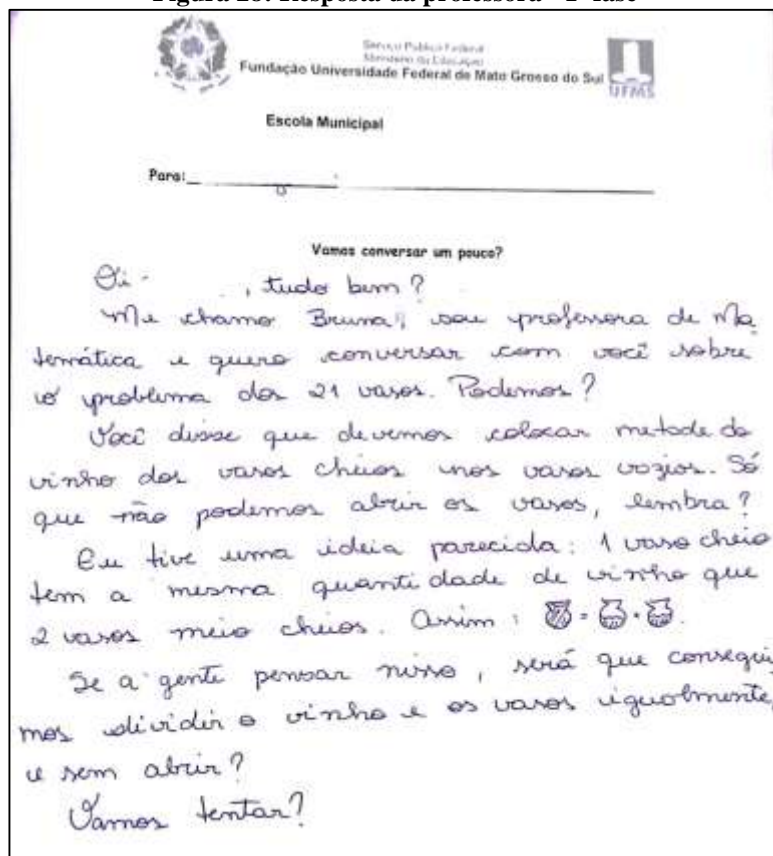 Figura 28: Resposta da professora – 1ª fase
Serviço Público Federal
Ministério da Educação
Fundação Universidade Federal de Mato Grosso do Sul
UFMS
Escola Municipal
Para:
Vamos conversar um pouco?
Oi , tudo bem?
Me chamo Bruna, sou professora de Ma
temática e quero conversar com você sobre
o problema dos 21 vasos. Podemos?
Você disse que devemos colocar metade do
vinho dos vasos cheios nos vasos vazios. Só
que não podemos abrir os vasos, lembra?
Eu tive uma ideia parecida: 1 vaso cheio
tem a mesma quantidade de vinho que
2 vasos meio cheios. Assim: = +
Se a gente pensar nisso, será que consegui
mos dividir o vinho e os vasos igualmente,
e sem abrir?
Vamos tentar?